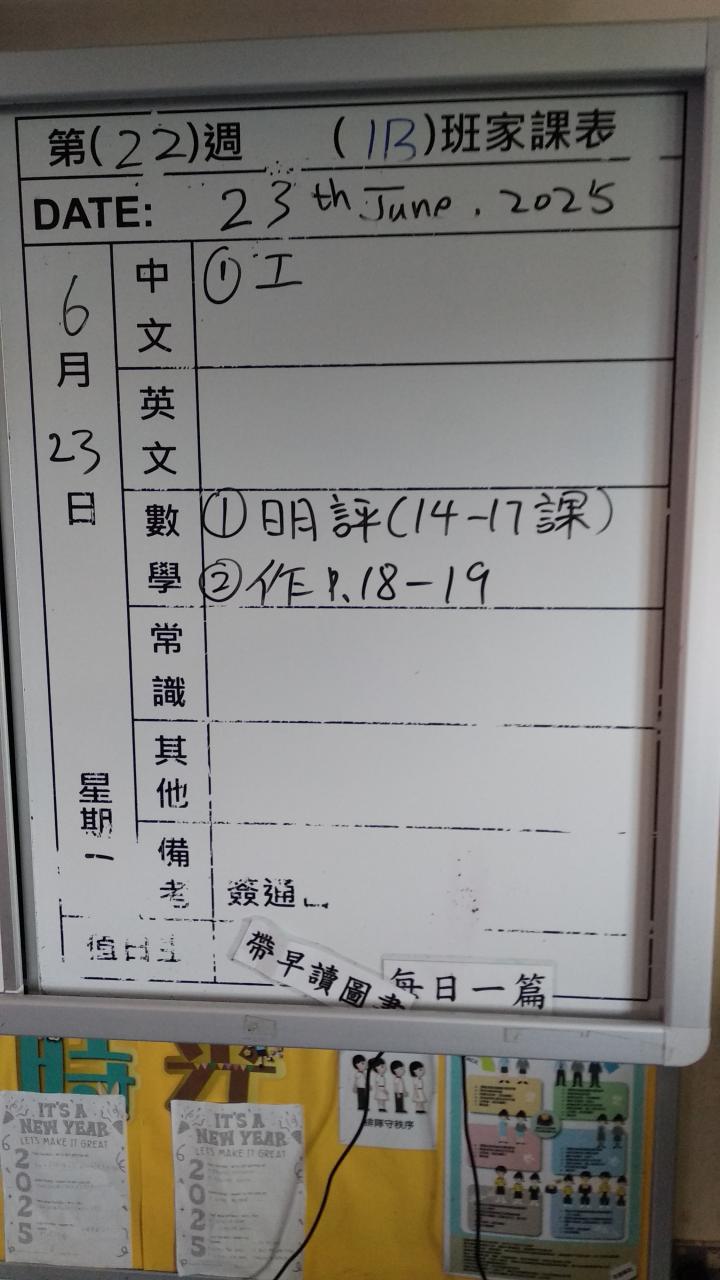 第(22)週 (1B)班家課表
DATE: 23th June. 2025
6月23日 星期一
中文 ①工
英文
數學 ①明評(14-17課)
②作P.18-19
常識
其他
備考 簽通
帶早讀圖書
每日一篇
時光
排隊守秩序
IT'S A
NEW YEAR
LETS MAKE IT GREAT
2025
IT'S A
NEW YEAR
LETS MAKE IT GREAT
2025